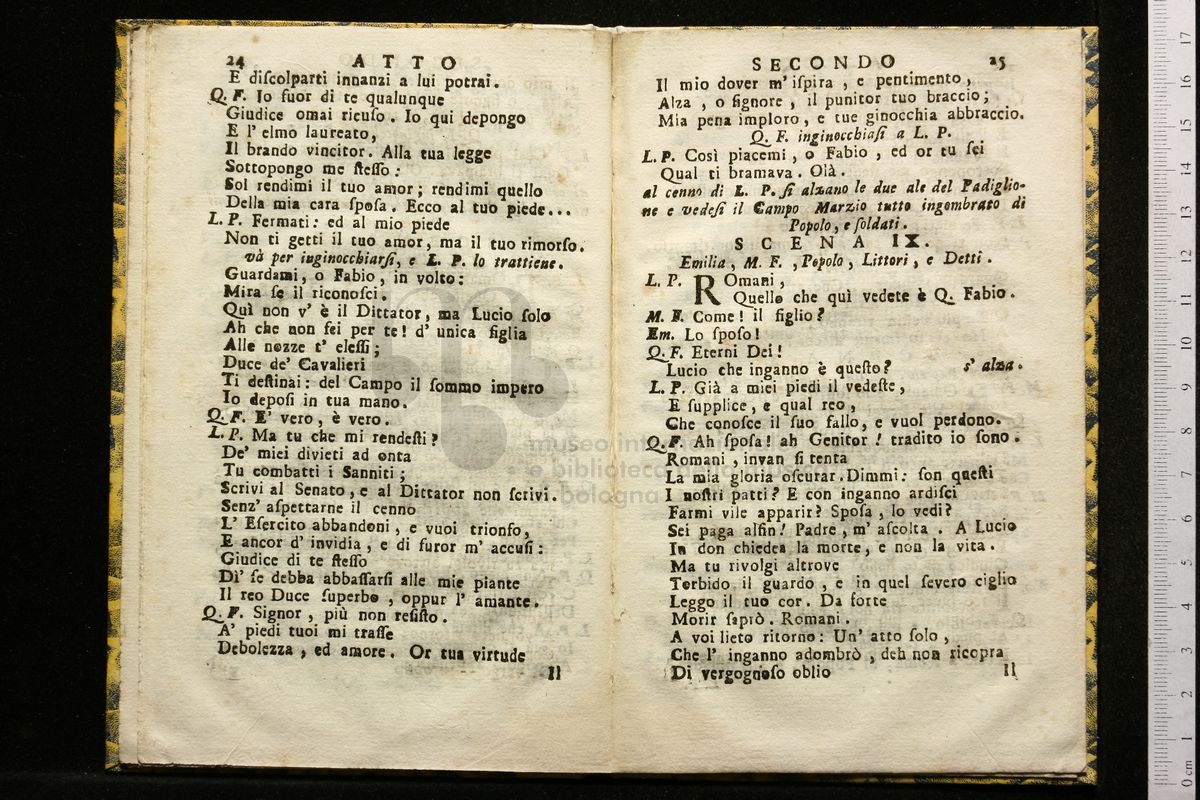 24 ATTO
E diſcolparti innanzi a lui potrai.
Q. F. Io fuor di te qualunque
Giudice omai ricuſo. Io qui depongo
E l' elmo laureato,
Il brando vincitor. Alla tua legge
Sottopongo me ſteſſo:
Sol rendimi il tuo amor; rendimi quello
Della mia cara ſpoſa. Ecco al tuo piede...
L. P. Fermati: ed al mio piede
Non ti getti il tuo amor, ma il tuo rimorſo.
và per inginocchiarſi, e L. P. lo trattiene.
Guardami, o Fabio, in volto:
Mira ſe il riconoſci.
Quì non v' è il Dittator, ma Lucio ſolo
Ah che non ſei per te! d' unica figlia
Alle nozze t' eleſſi;
Duce de' Cavalieri
Ti deſtinai: del Campo il ſommo impero
Io depoſi in tua mano.
Q. F. E' vero, è vero.
L. P. Ma tu che mi rendeſti?
De' miei divieti ad onta
Tu combatti i Sanniti;
Scrivi al Senato, e al Dittator non ſcrivi.
Senz' aſpettarne il cenno
L' Eſercito abbandoni, e vuoi trionfo,
E ancor d' invidia, e di furor m' accuſi:
Giudice di te ſteſſo
Di' ſe debba abbaſſarſi alle mie piante
Il reo Duce ſuperbo, oppur l' amante.
Q. F. Signor, più non reſiſto.
A' piedi tuoi mi traſſe
Debolezza, ed amore. Or tua virtude
Il
SECONDO 25
Il mio dover m' iſpira, e pentimento,
Alza, o ſignore, il punitor tuo braccio;
Mia pena imploro, e tue ginocchia abbraccio.
Q. F. inginocchiaſi a L. P.
L. P. Così piacemi, o Fabio, ed or tu ſei
Qual ti bramava. Olà.
al cenno di L. P. ſi alzano le due ale del Padiglio-
ne e vedeſi il Campo Marzio tutto ingombrato di
Popolo, e ſoldati.
SCENA IX.
Emilia, M. F., Popolo, Littori, e Detti.
L. P. ROmani,
Quello che quì vedete è Q. Fabio.
M. F. Come! il figlio?
Em. Lo ſpoſo!
Q. F. Eterni Dei!
Lucio che inganno è queſto? s' alza.
L. P. Già a miei piedi il vedeſte,
E ſupplice, e qual reo,
Che conoſce il ſuo fallo, e vuol perdono.
Q. F. Ah ſpoſa! ah Genitor! tradito io ſono.
Romani, invan ſi tenta
La mia gloria oſcurar. Dimmi: ſon queſti
I noſtri patti? E con inganno ardiſci
Farmi vile apparir? Spoſa, lo vedi?
Sei paga alfin! Padre, m' aſcolta. A Lucio
In don chiedea la morte, e non la vita.
Ma tu rivolgi altrove
Torbido il guardo, e in quel ſevero ciglio
Leggo il tuo cor. Da forte
Morir ſaprò. Romani.
A voi lieto ritorno: Un' atto ſolo,
Che l' inganno adombrò, deh non ricopra
Di vergognoſo oblio
Il